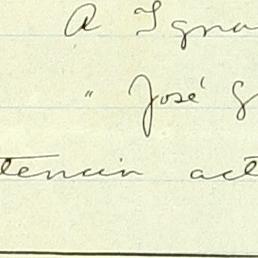 A Igna
" José G
tencin act